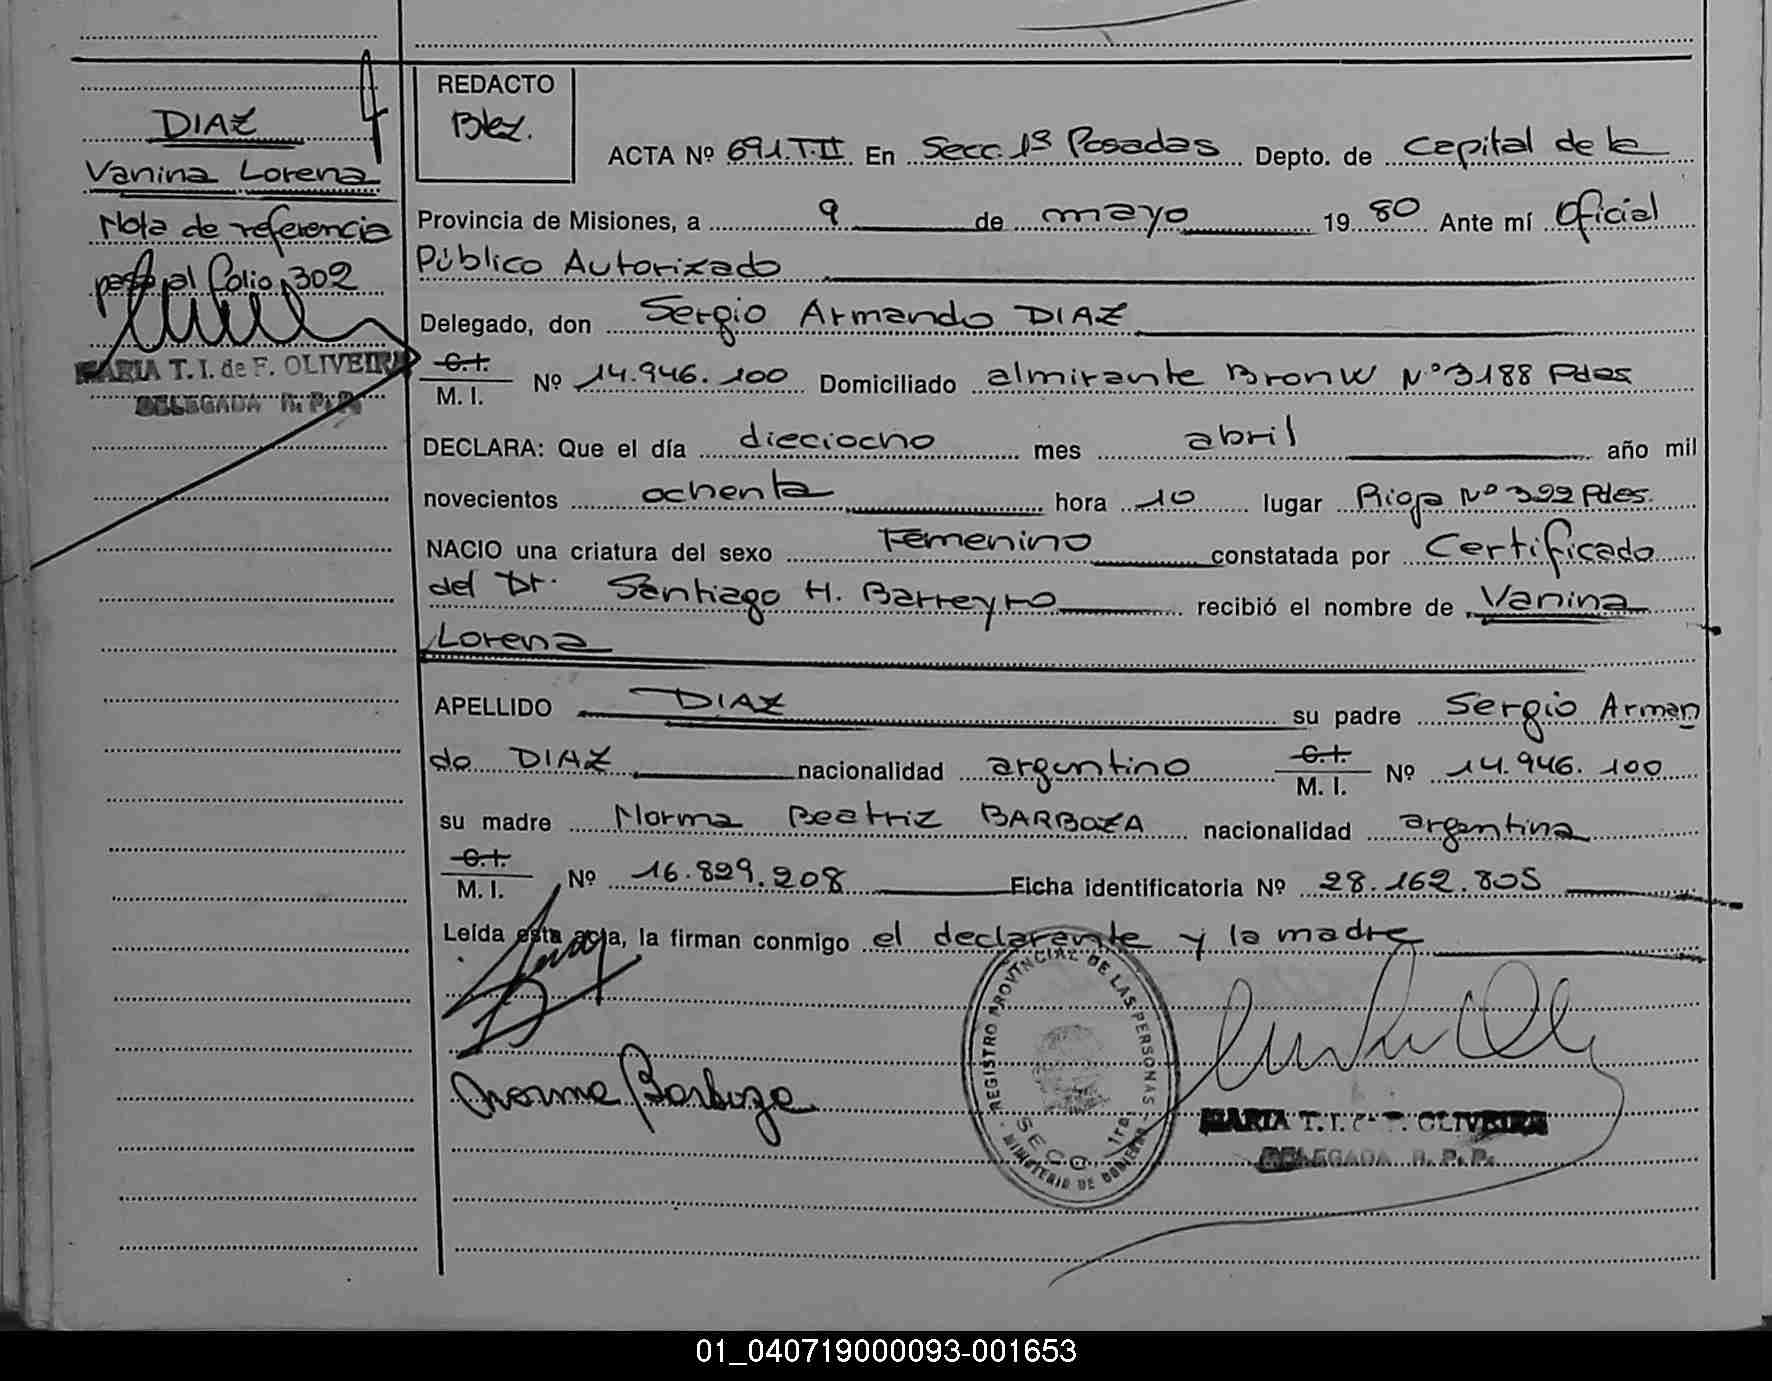 DIAZ
Vanina Lorena
Nota de referencia
pasa al folio 302
MARIA T. I. de F. OLIVEIRA
DELEGADA R. P. P.
REDACTO
Blez.
ACTA Nº 691.T.II En Secc. 1ª Posadas Depto. de Capital de la
Provincia de Misiones, a 9 de mayo 19 80 Ante mí Oficial
Público Autorizado
Delegado, don Sergio Armando DIAZ
C.I.
M. I. Nº 14.946.100 Domiciliado almirante BronW Nº 3188 Pdas
DECLARA: Que el día dieciocho mes abril año mil
novecientos ochenta hora 10 lugar Rioja Nº 392 Pdas.
NACIO una criatura del sexo Femenino constatada por Certificado
del Dr. Santiago H. Barreyro recibió el nombre de Vanina
Lorena
APELLIDO DIAZ su padre Sergio Arman
do DIAZ nacionalidad argentino C.I.
M. I. Nº 14.946.100
su madre Norma Beatriz BARBOZA nacionalidad argentina
C.I.
M. I. Nº 16.829.208 Ficha identificatoria Nº 28.162.805
Leída esta acta, la firman conmigo el declarante y la madre
Norma Barboza
REGISTRO PROVINCIAL DE LAS PERSONAS
SECC. 1ra.
MINISTERIO DE GOBIERNO
MARIA T. I. de F. OLIVEIRA
DELEGADA R. P. P.
01_040719000093-001653